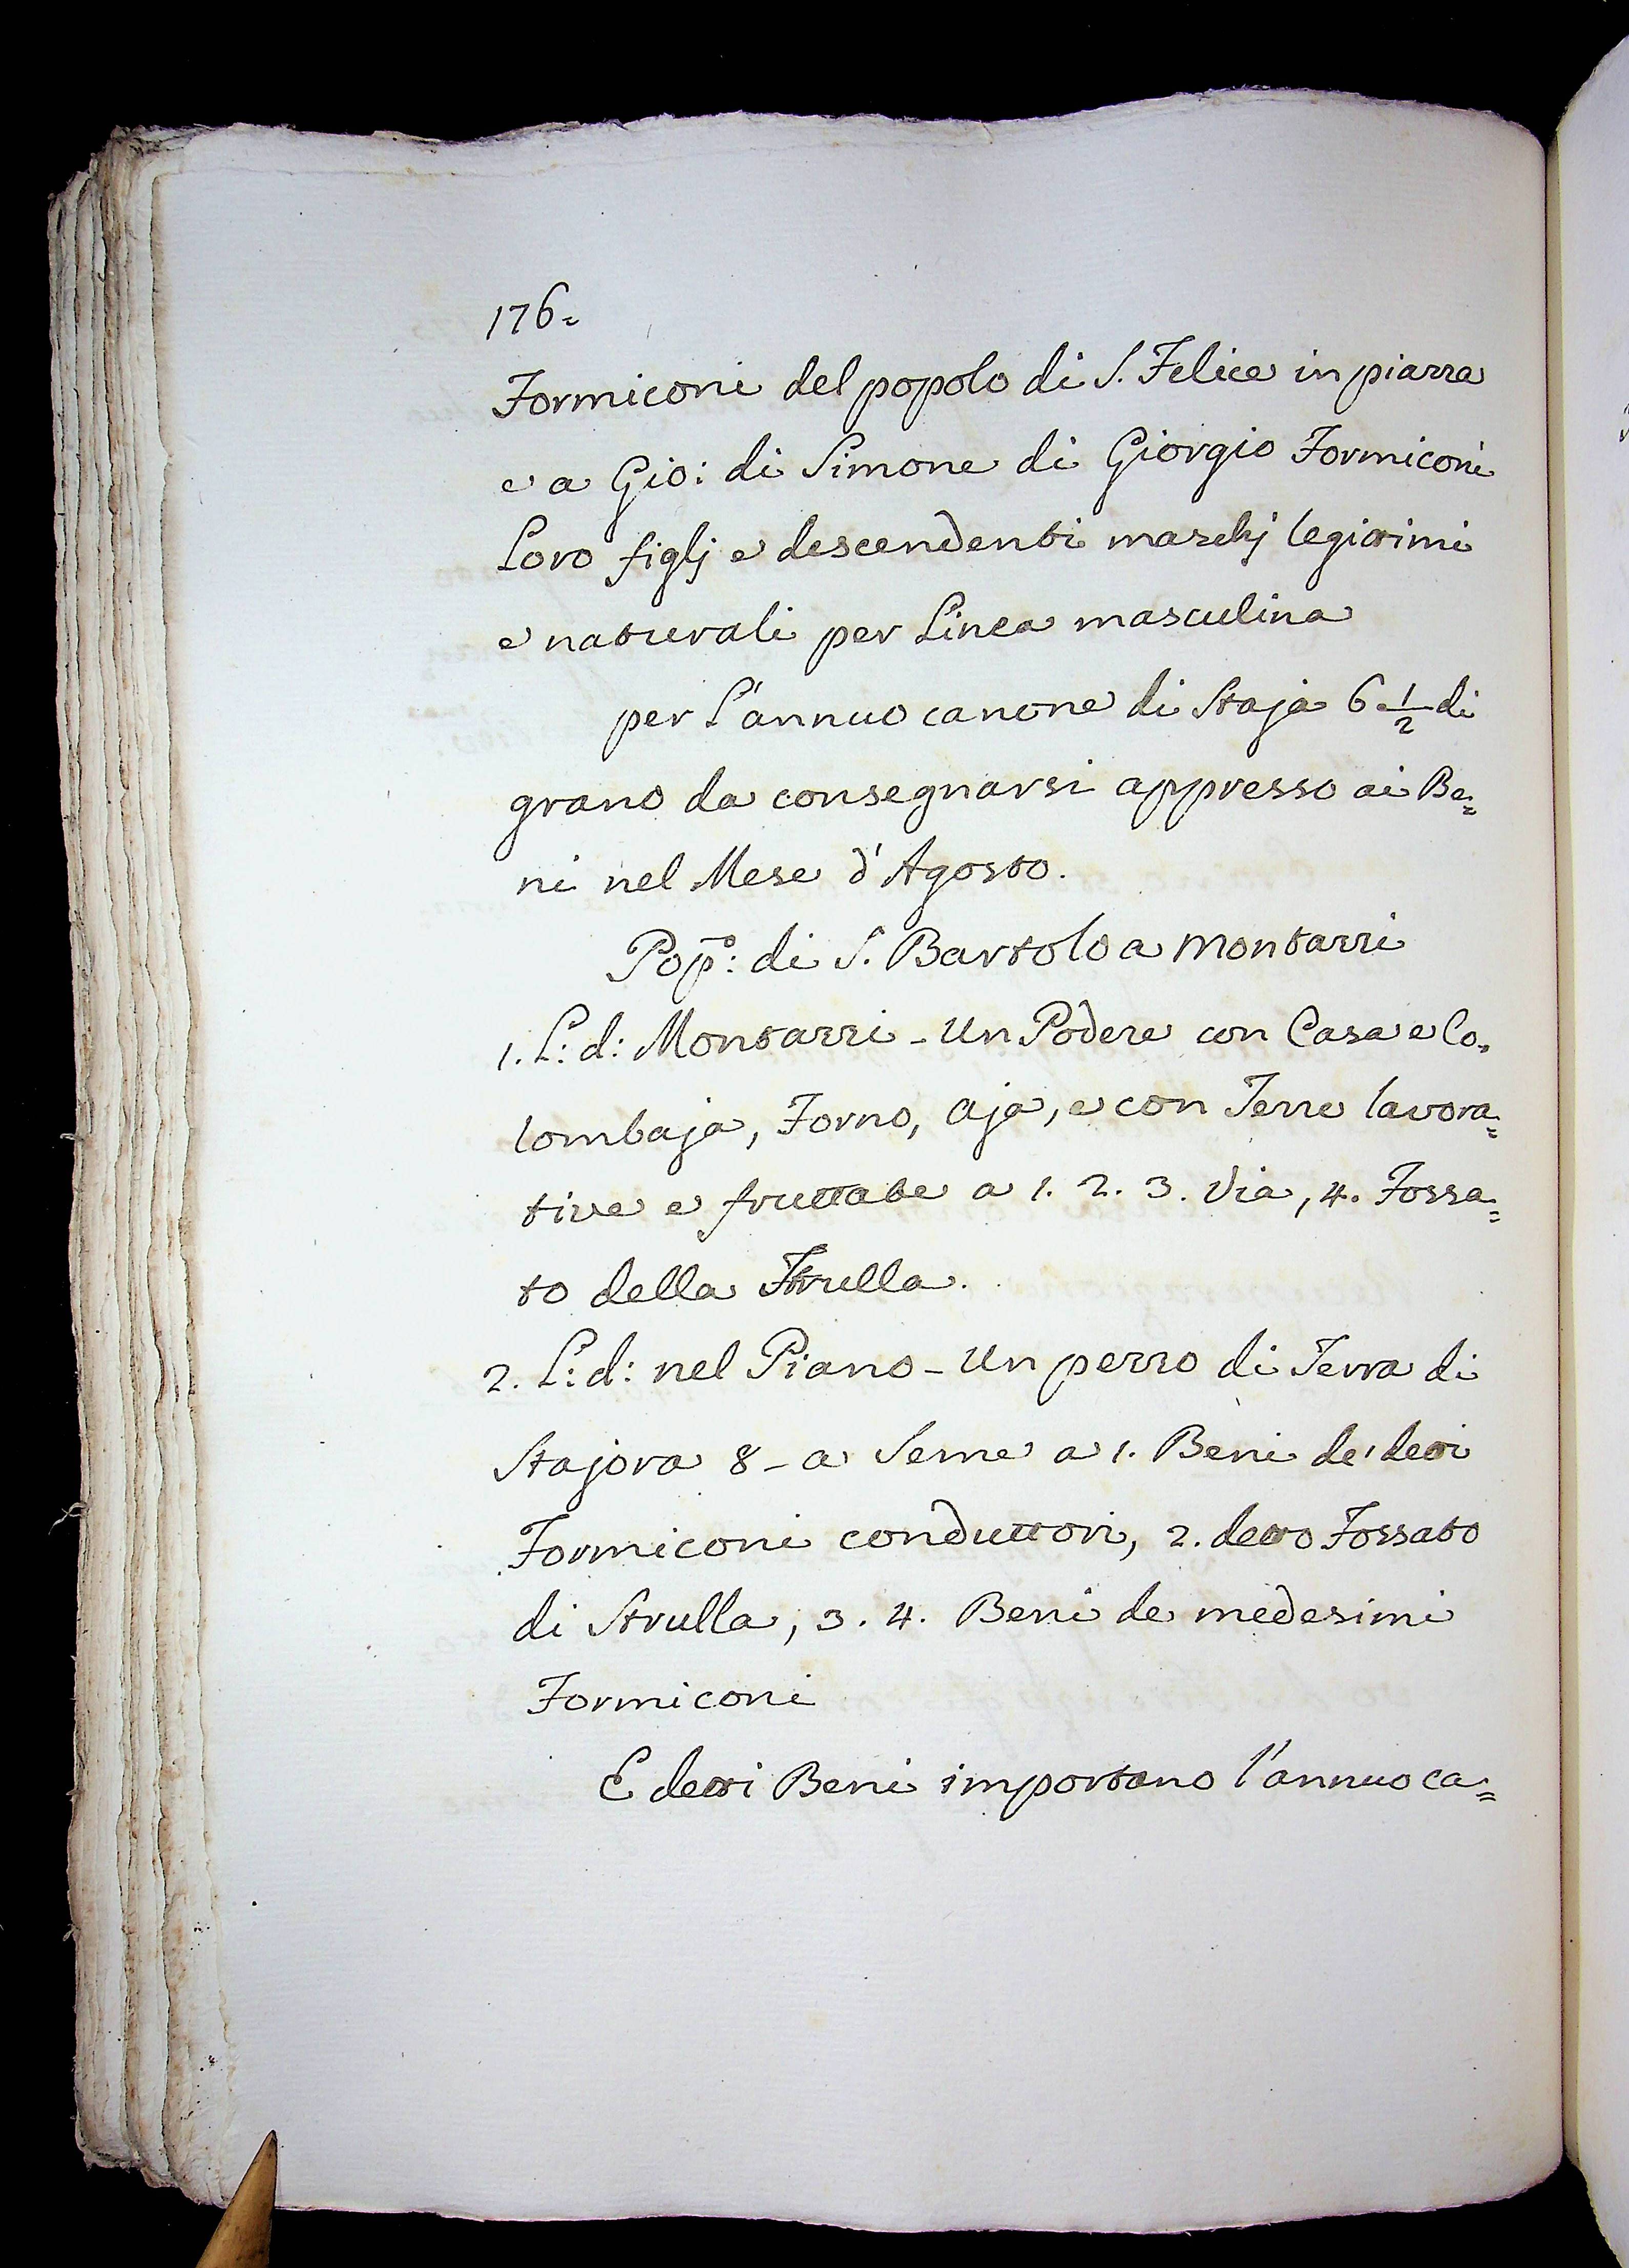 176=
Formiconi del popolo di S. Felice in piazza
e a Gio: di Simone di Giorgio Formiconi
Loro figlj e descendenti maschj legittimi
e naturali per Linea masculina
per L'annuo canone di Staja 6 1/2 di
grano da consegnarsi appresso ai Be=
ni nel Mese d'Agosto.
Pop:o di S. Bartolo a Montazzi
1. L: d: Montazzi - Un Podere con Casa e Co=
lombaja, Forno, Aja, e con Terre lavora=
tive e fruttate a 1. 2. 3. Via, 4. Fossa=
to della Strulla.
2. L: d: nel Piano - Un pezzo di Terra di
Stajora 8 - a Seme a 1. Beni de' detti
Formiconi conduttori, 2. detto Fossato
di Strulla, 3. 4. Beni de medesimi
Formiconi
E detti Beni importano l'annuo ca=